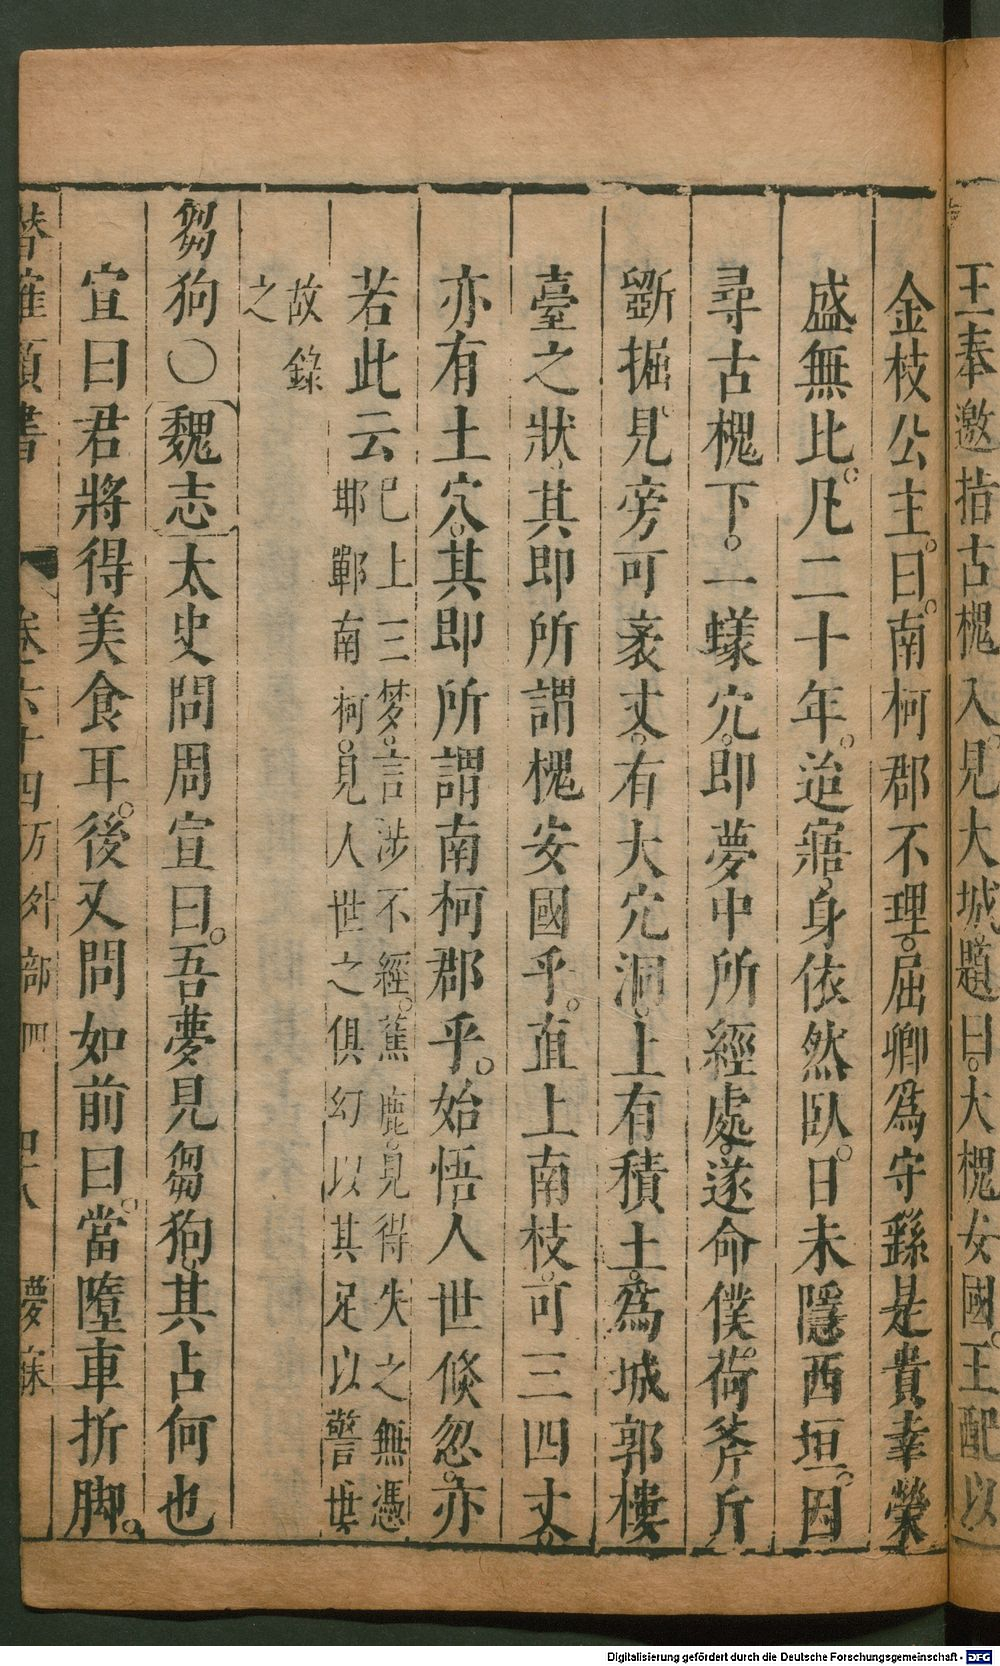 王奉邀指古槐入。見大城。題曰。大槐安國。王配以
金枝公主。曰。南柯郡不理。屈卿爲守。繇是貴幸榮
盛無比。凡二十年。迨寤。身依然臥。日未隱西垣。因
尋古槐下。一蟻穴。卽夢中所經處。遂命僕荷斧斤
斸掘。見旁可袤丈。有大穴洞。上有積土。爲城郭樓
臺之狀。其卽所謂槐安國乎。直上南枝。可三四丈。
亦有土穴。其卽所謂南柯郡乎。始悟人世倐忽。亦
若此云
已上三夢。言涉不經。蕉鹿。見得失之無憑
邯鄲南柯。見人世之俱幻以其足以警世
故錄
之
芻狗〇魏志太史問周宣曰。吾夢見芻狗。其占何也
宣曰君將得美食耳。後又問如前曰。當墮車折脚。
卷六十四 方外部四 四十八 夢寐
Digitalisierung gefördert durch die Deutsche Forschungsgemeinschaft - DFG